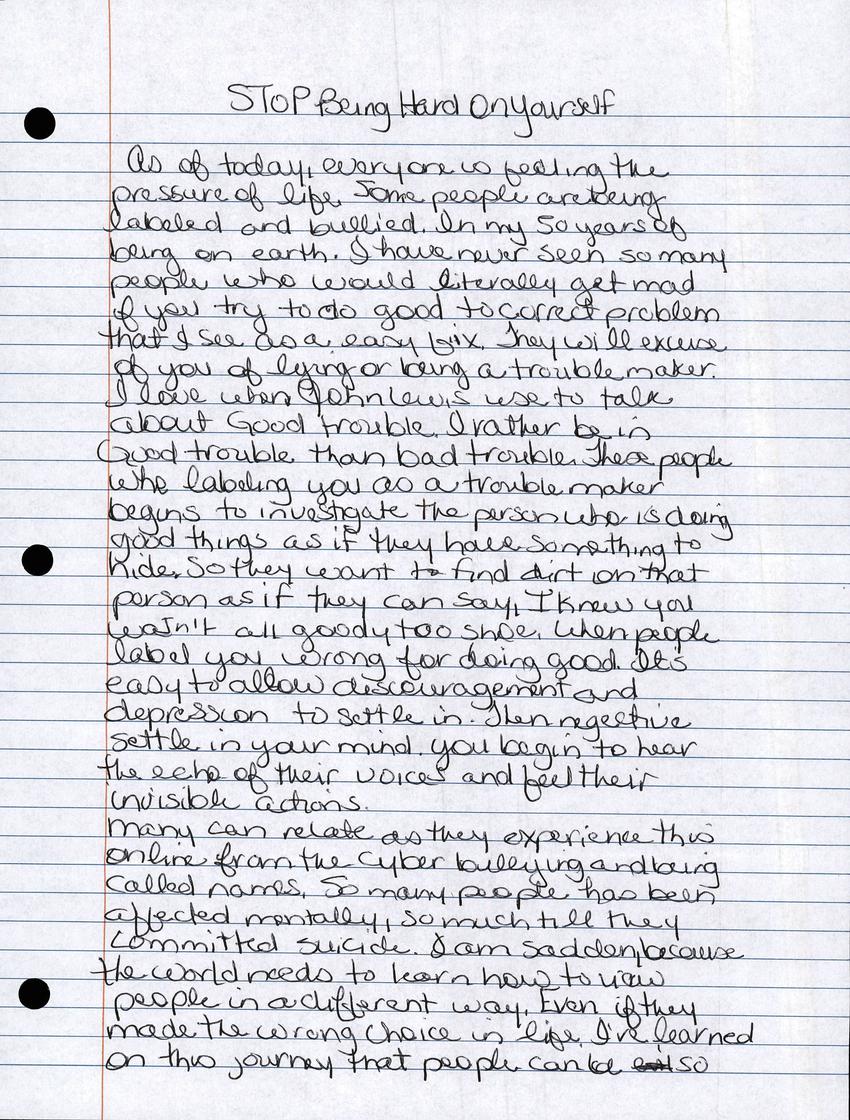 STOP Being Hard On Yourself
As of today, everyone is feeling the
pressure of life. Some people are being
labeled and bullied. In my 50 years of
being on earth. I have never seen so many
people who would literally get mad
if you try to do good to correct problem
that I see as a easy fix. They will excuse
of you of lying or being a trouble maker.
I love when John Lewis use to talk
about Good trouble. I rather be in
Good trouble than bad trouble. These people
who labeling you as a trouble maker
begins to investigate the person who is doing
good things as if they have something to
hide. So they want to find dirt on that
person as if they can say, I knew you
wasn't all goody too shoe. When people
label you wrong for doing good. It's
easy to allow discouragement and
depression to settle in. Then negective
settle in your mind. you begin to hear
the echo of their voices and feel their
invisible actions.
Many can relate as they experience this
online from the cyber bullying and being
called names. So many people has been
affected mentally, so much till they
committed suicide. I am sadden, because
the world needs to learn how to view
people in a different way. Even if they
made the wrong choice in life. I've learned
on this journey that people can be so